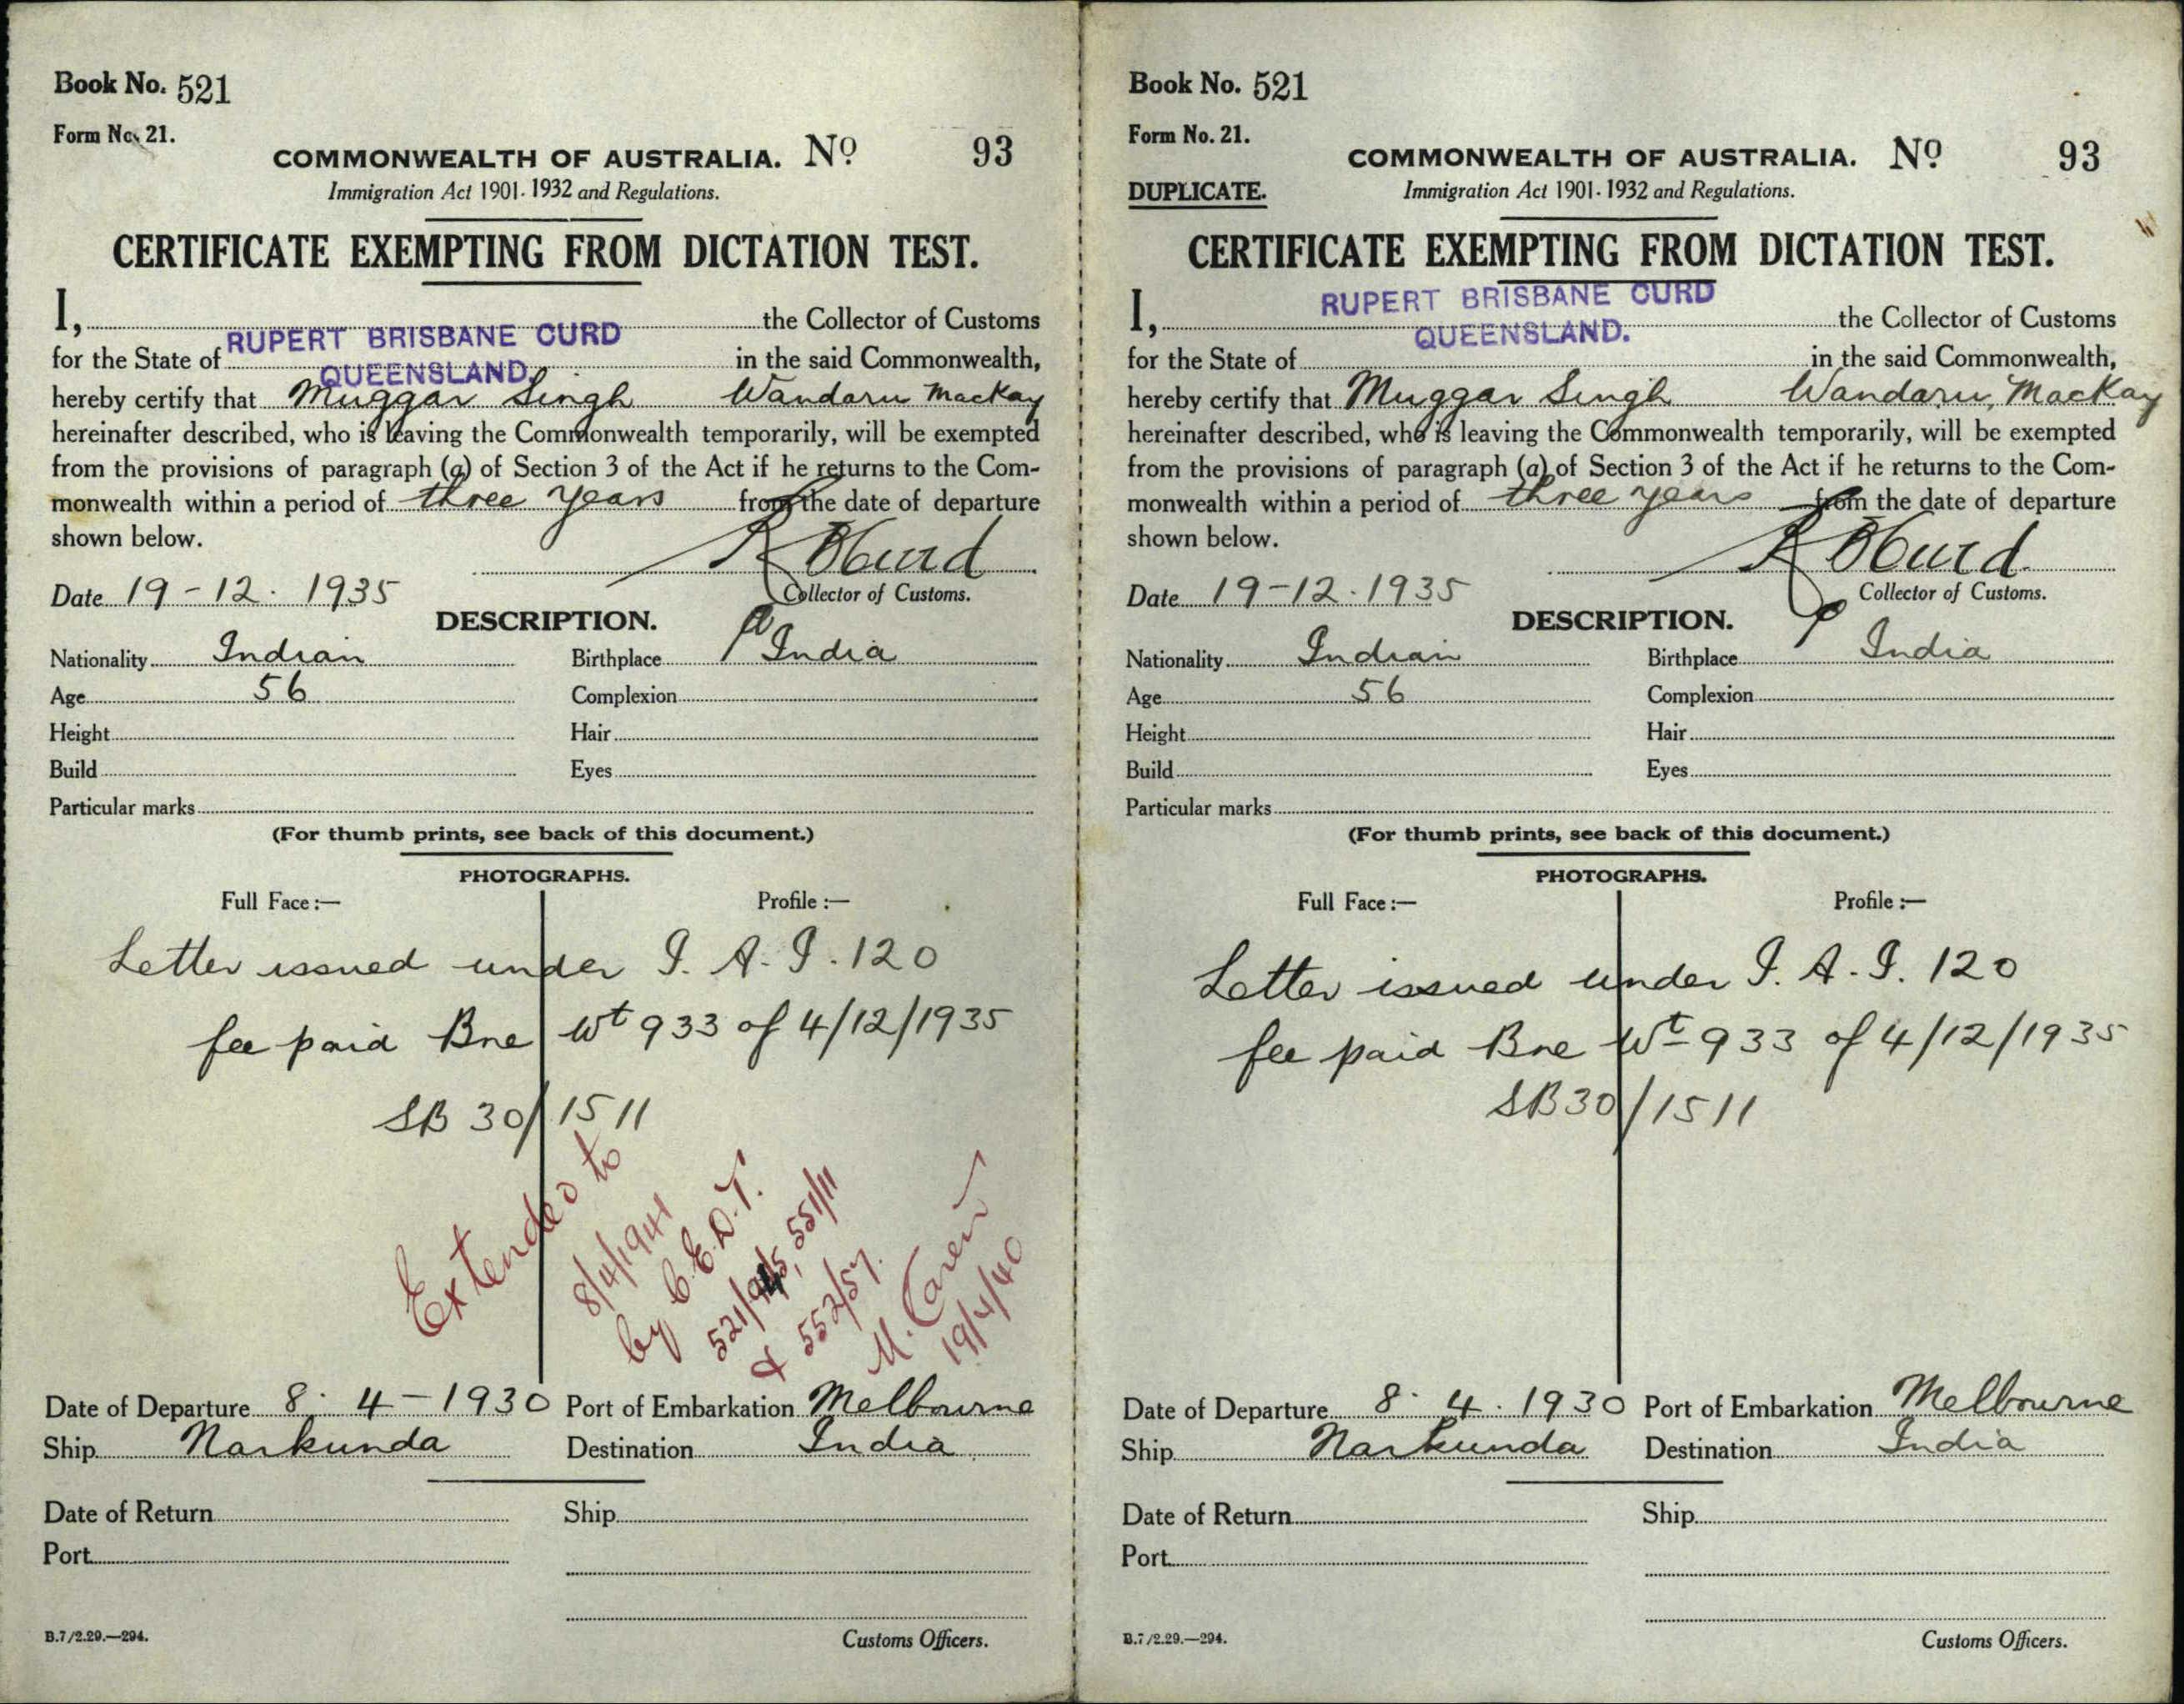 Book No. 521
Form No. 21.
COMMONWEALTH OF AUSTRALIA. No 93
Immigration Act 1901-1932 and Regulations.
CERTIFICATE EXEMPTING FROM DICTATION TEST.
I, RUPERT BRISBANE CURD the Collector of Customs
for the State of QUEENSLAND. in the said Commonwealth,
hereby certify that Muggar Singh Wandaru Mackay
hereinafter described, who is leaving the Commonwealth temporarily, will be exempted
from the provisions of paragraph (a) of Section 3 of the Act if he returns to the Com-
monwealth within a period of three years from the date of departure
shown below.
R B Curd
Date 19-12. 1935
Collector of Customs.
DESCRIPTION.
Nationality Indian Birthplace India
Age 56 Complexion
Height Hair
Build Eyes
Particular marks
(For thumb prints, see back of this document.)
PHOTOGRAPHS.
Full Face :— Profile :—
Letter issued under I. A. I. 120
fee paid Bne Wt 933 of 4/12/1935
SB 30/1511
Extended to
8/4/1941
by C.E.D.T.
551/11
& 552/57.
M. Carew
19/4/40
Date of Departure 8. 4-1930 Port of Embarkation Melbourne
Ship Narkunda Destination India
Date of Return Ship
Port
B.7/2.29.—294.
Customs Officers.
Book No. 521
Form No. 21.
COMMONWEALTH OF AUSTRALIA. No 93
DUPLICATE.
Immigration Act 1901-1932 and Regulations.
CERTIFICATE EXEMPTING FROM DICTATION TEST.
I, RUPERT BRISBANE CURD the Collector of Customs
for the State of QUEENSLAND. in the said Commonwealth,
hereby certify that Muggar Singh Wandaru, Mackay
hereinafter described, who is leaving the Commonwealth temporarily, will be exempted
from the provisions of paragraph (a) of Section 3 of the Act if he returns to the Com-
monwealth within a period of three years from the date of departure
shown below.
R B Curd.
Date 19-12.1935
Collector of Customs.
DESCRIPTION.
Nationality Indian Birthplace India
Age 56 Complexion
Height Hair
Build Eyes
Particular marks
(For thumb prints, see back of this document.)
PHOTOGRAPHS.
Full Face :— Profile :—
Letter issued under I. A. I. 120
fee paid Bne Wt 933 of 4/12/1935
SB30/1511
Date of Departure 8. 4. 1930 Port of Embarkation Melbourne
Ship Narkunda Destination India
Date of Return Ship
Port
B.7/2.29.—294.
Customs Officers.